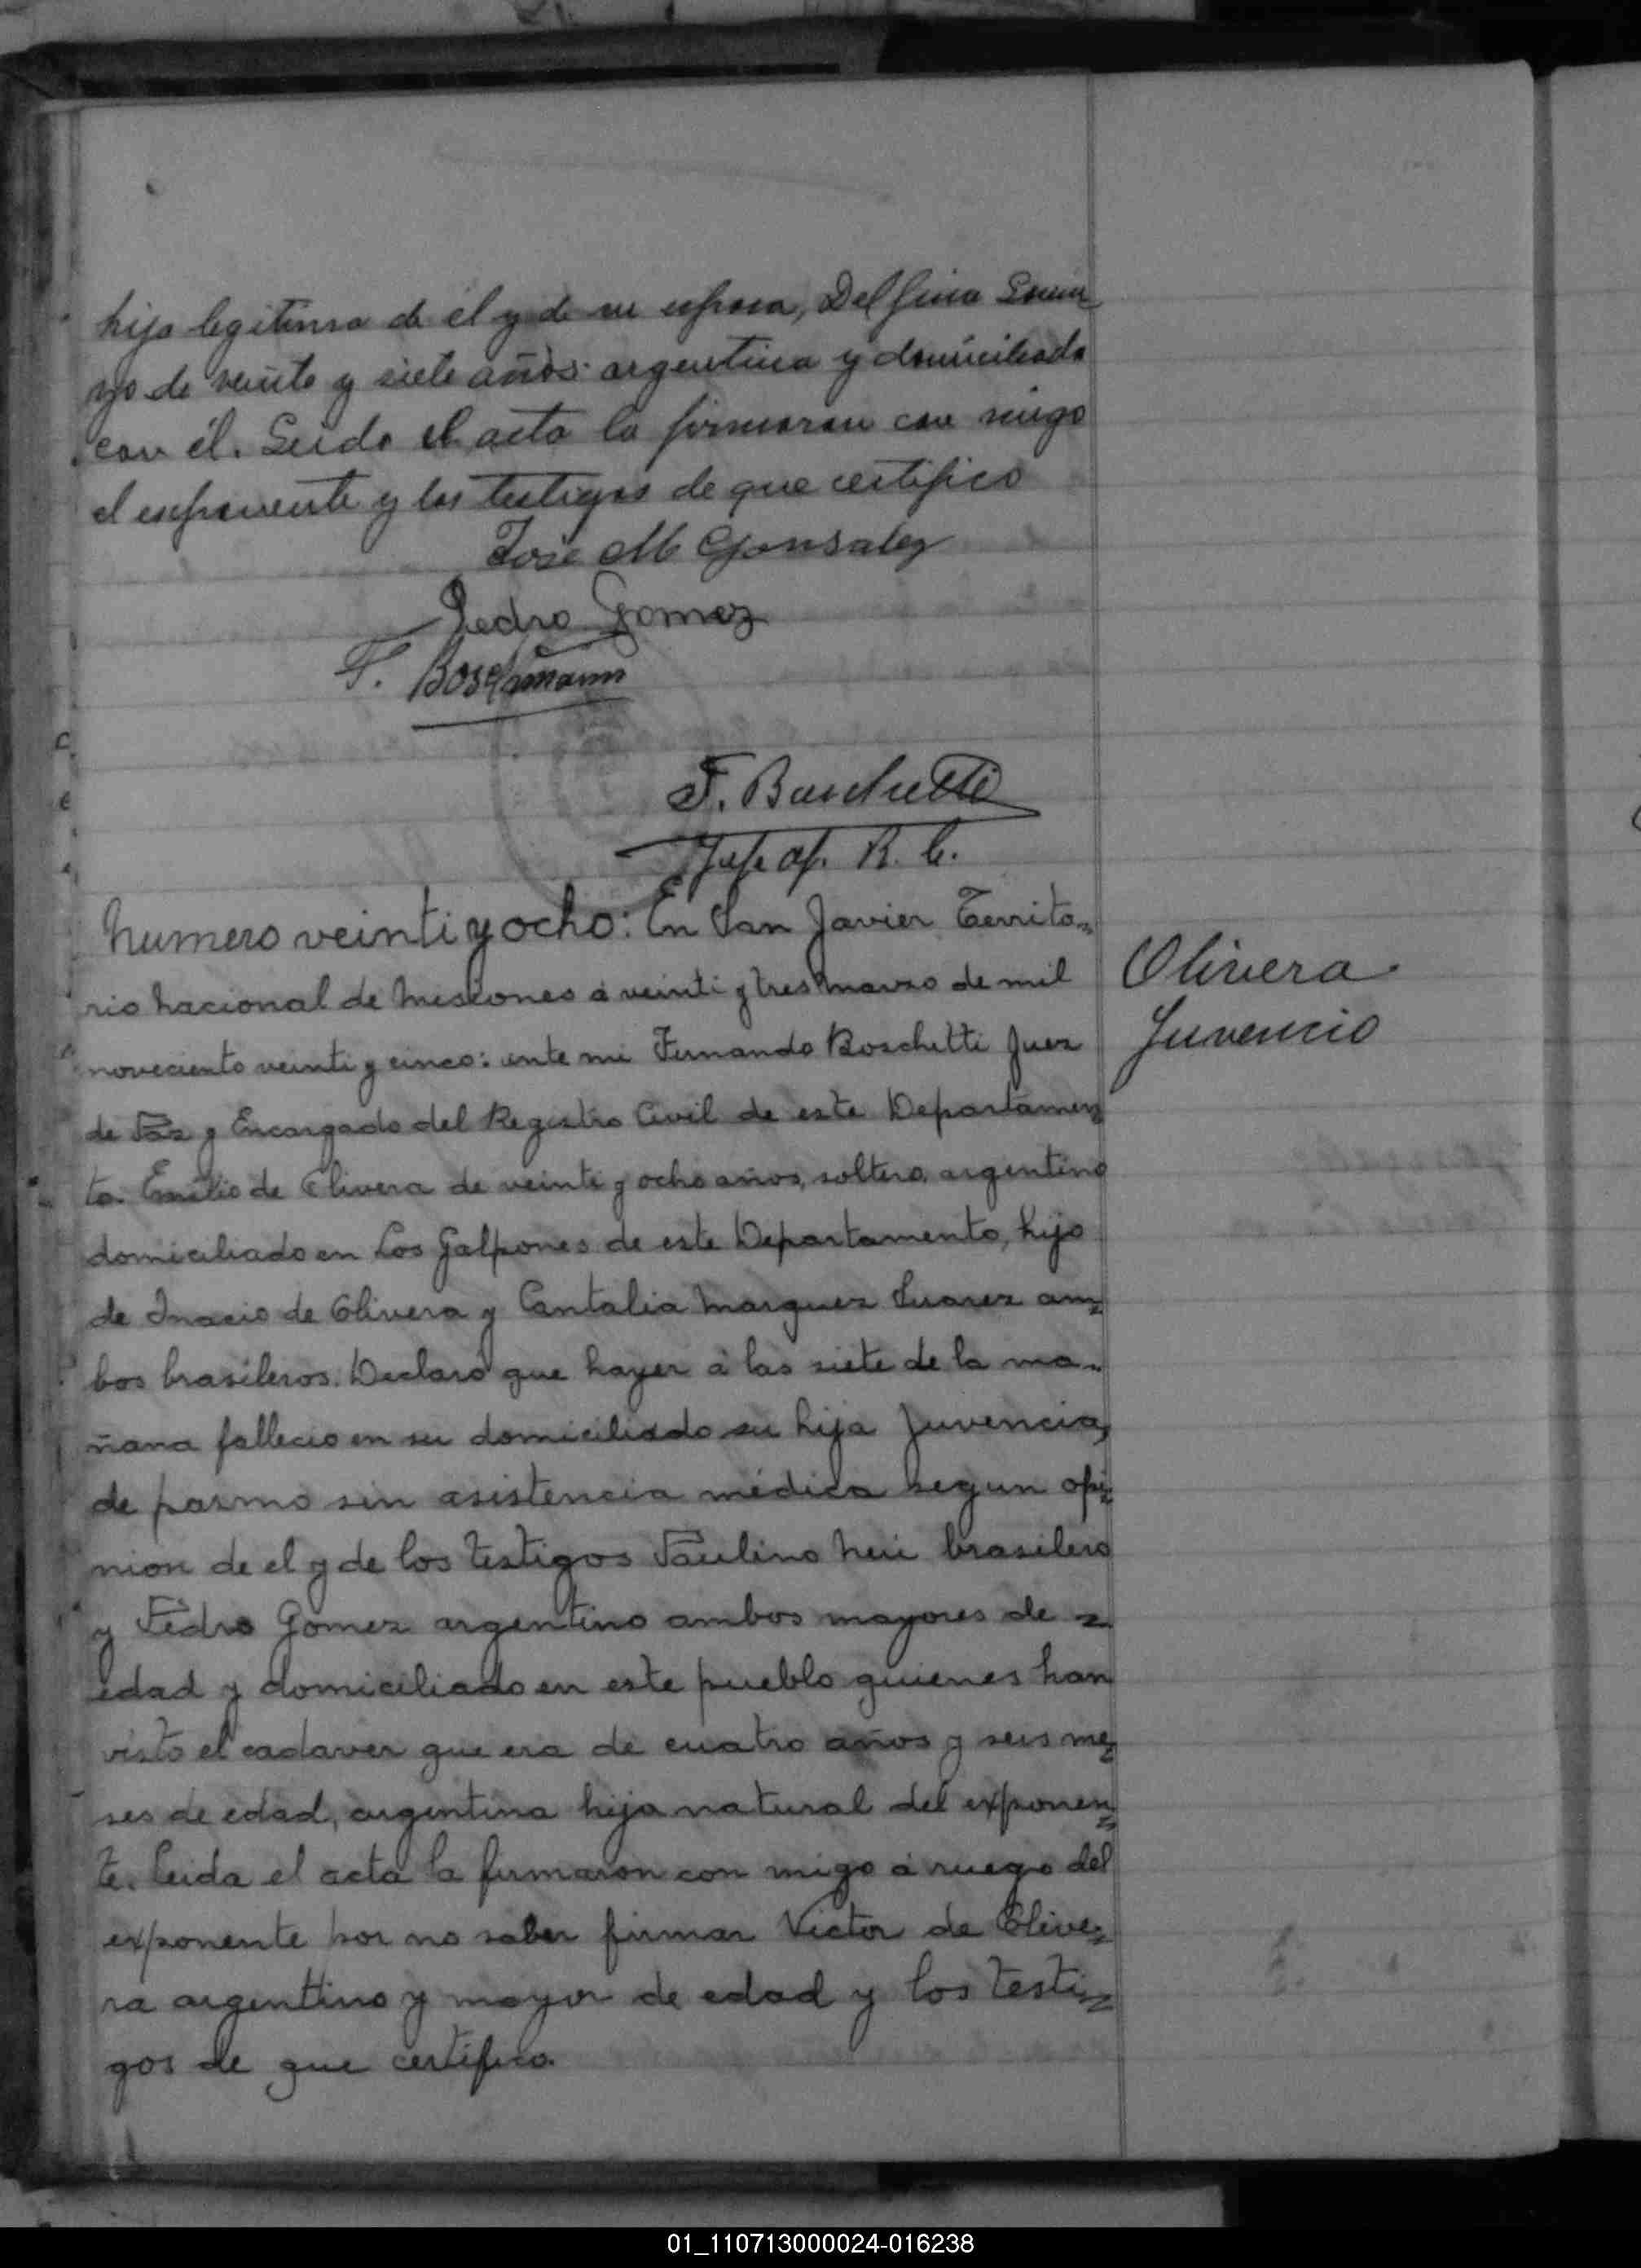 hijo legitimo de el y de su esposa, Delfina
yo de veinte y siete años argentina y domiciliada
con él. Leido el acta la firmaron con migo
el exponente y los testigos de que certifico
José M Gonsalez
Pedro Gomez
F.
F. Boschetti
R. C.
Numero veinti y ocho: En San Javier Territo-
rio Nacional de Misiones á veinti y tres marzo de mil
noveciento veinti y cinco: ante mi Fernando Boschetti Juez
de Paz y Encargado del Registro Civil de este Departamen-
to. Emilio de Olivera de veinti y ocho años, soltero, argentino
domiciliado en Los Galpones de este Departamento, hijo
de Inacio de Olivera y Cantalia Marquez Suarez am-
bos brasileros. Declaró que hayer á las siete de la ma-
ñana fallecio en su domiciliado su hija Juvencia,
de pasmo sin asistencia médica segun opi-
nion de el y de los testigos Paulino brasilero
y Pedro Gomez argentino ambos mayores de
edad y domiciliado en este pueblo quienes han
visto el cadaver que era de cuatro años y seis me-
ses de edad, argentina hija natural del exponen-
te. Leida el acta la firmaron con migo á ruego del
exponente por no saber firmar Victor de Olive-
ra argentino y mayor de edad y los testi-
gos de que certifico.
Olivera
Juvencio
01_110713000024-016238